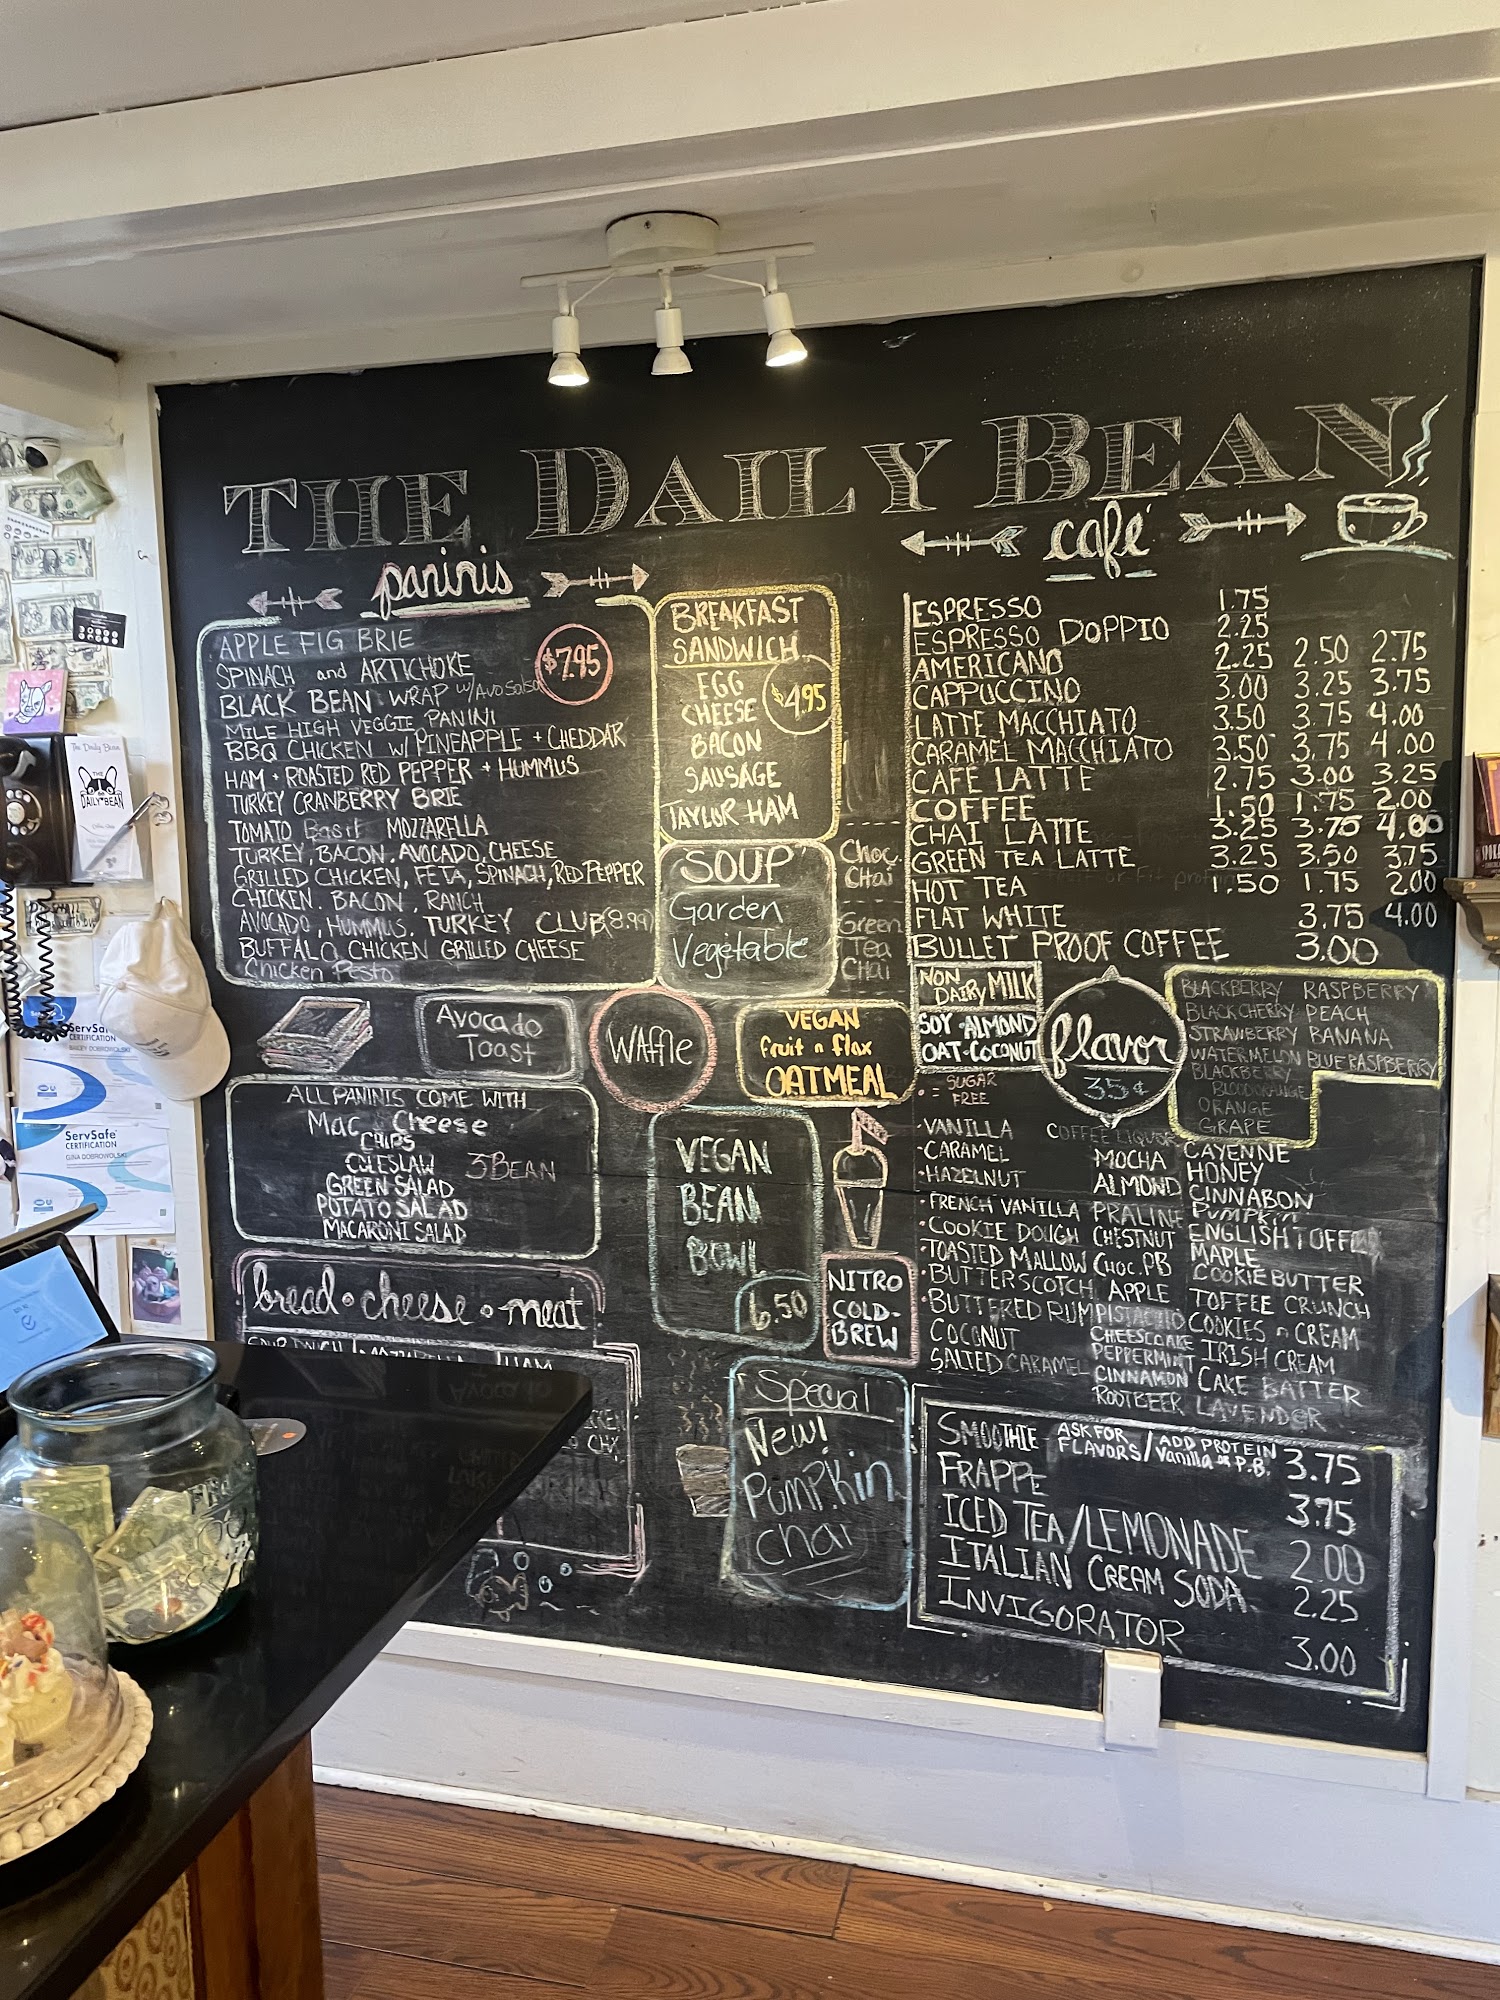 THE DAILY BEAN
paninis
APPLE FIG BRIE
$7.95
SPINACH and ARTICHOKE
BLACK BEAN WRAP w/Avo Salsa
MILE HIGH VEGGIE PANINI
BBQ CHICKEN W/ PINEAPPLE + CHEDDAR
HAM + ROASTED RED PEPPER + HUMMUS
TURKEY CRANBERRY BRIE
TOMATO Basil MOZZARELLA
TURKEY, BACON, AVOCADO, CHEESE
GRILLED CHICKEN, FETA, SPINACH, RED PEPPER
CHICKEN. BACON. RANCH
AVOCADO, HUMMUS, TURKEY CLUB (8.99)
BUFFALO CHICKEN GRILLED CHEESE
Chicken Pesto
BREAKFAST
SANDWICH
EGG
CHEESE
$4.95
BACON
SAUSAGE
TAYLOR HAM
SOUP
Garden
Vegetable
Choc.
Chai
Green
Tea
Chai
café
ESPRESSO 1.75
ESPRESSO DOPPIO 2.25
AMERICANO 2.25 2.50 2.75
CAPPUCCINO 3.00 3.25 3.75
LATTE MACCHIATO 3.50 3.75 4.00
CARAMEL MACCHIATO 3.50 3.75 4.00
CAFE LATTE 2.75 3.00 3.25
COFFEE 1.50 1.75 2.00
CHAI LATTE 3.25 3.75 4.00
GREEN TEA LATTE 3.25 3.50 3.75
HOT TEA 1.50 1.75 2.00
FLAT WHITE 3.75 4.00
BULLET PROOF COFFEE 3.00
Avocado
Toast
WAffle
VEGAN
fruit n flax
OATMEAL
NON DAIRY MILK
SOY • ALMOND
OAT • COCONUT
flavor
35¢
BLACKBERRY RASPBERRY
BLACK CHERRY PEACH
STRAWBERRY BANANA
WATERMELON BLUE RASPBERRY
BLACKBERRY
BLOOD ORANGE
ORANGE
GRAPE
• = SUGAR
FREE
COFFEE LIQUOR
• VANILLA
• CARAMEL
• HAZELNUT
• FRENCH VANILLA
• COOKIE DOUGH
• TOASTED MALLOW
• BUTTERSCOTCH
• BUTTERED RUM
COCONUT
SALTED CARAMEL
MOCHA
ALMOND
PRALINE
CHESTNUT
CHOC. PB
APPLE
PISTACHIO
CHEESCAKE
PEPPERMINT
CINNAMON
ROOTBEER
CAYENNE
HONEY
CINNABON
PUMPKIN
ENGLISH TOFFEE
MAPLE
COOKIE BUTTER
TOFFEE CRUNCH
COOKIES n CREAM
IRISH CREAM
CAKE BATTER
LAVENDER
ALL PANINIS COME WITH
Mac & Cheese
CHIPS
COLESLAW 3 BEAN
GREEN SALAD
POTATO SALAD
MACARONI SALAD
VEGAN
BEAN
BOWL
6.50
NITRO
COLD-
BREW
bread • cheese • meat
HAM
Special
New!
Pumpkin
chai
SMOOTHIE ASK FOR FLAVORS / ADD PROTEIN Vanilla or P.B. 3.75
FRAPPE 3.75
ICED TEA/LEMONADE 2.00
ITALIAN CREAM SODA 2.25
INVIGORATOR 3.00
The Daily Bean
THE
DAILY BEAN
ServSafe
CERTIFICATION
BAILEY DOBROWOLSKI
ServSafe
CERTIFICATION
GINA DOBROWOLSKI